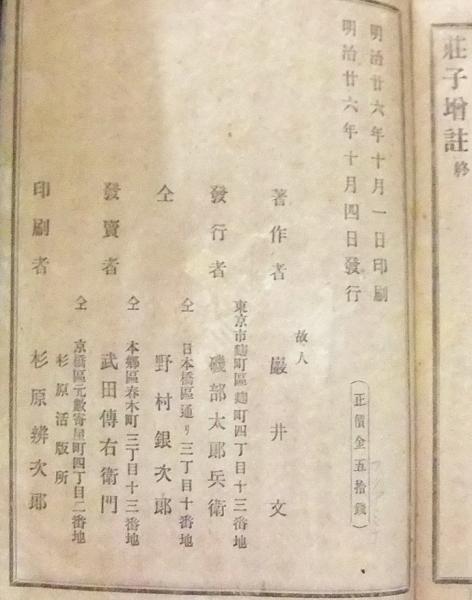 莊子增註 終
明治廿六年十月一日印刷
明治廿六年十月四日發行
(正價金五拾錢)
故人
著作者 巖井文
東京市麹町區麹町四丁目十三番地
發行者 磯部太郎兵衛
仝 日本橋區通リ三丁目十番地
仝 野村銀次郎
仝 本鄉區春木町三丁目十三番地
發賣者 武田傳右衛門
仝 京橋區元數寄屋町四丁目二番地
杉原活版所
印刷者 杉原辨次郎